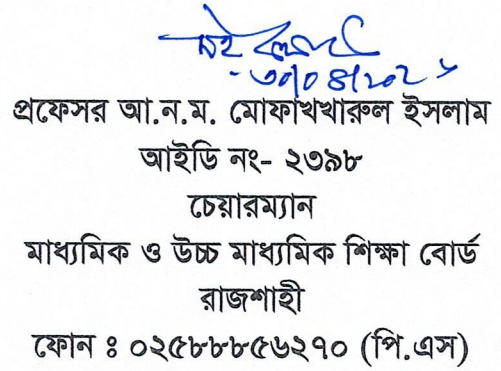 প্রফেসর আ.ন.ম. মোফাখখারুল ইসলাম
আইডি নং- ২৩৯৮
চেয়ারম্যান
মাধ্যমিক ও উচ্চ মাধ্যমিক শিক্ষা বোর্ড
রাজশাহী
ফোন ঃ ০২৫৮৮৮৫৬২৭০ (পি.এস)